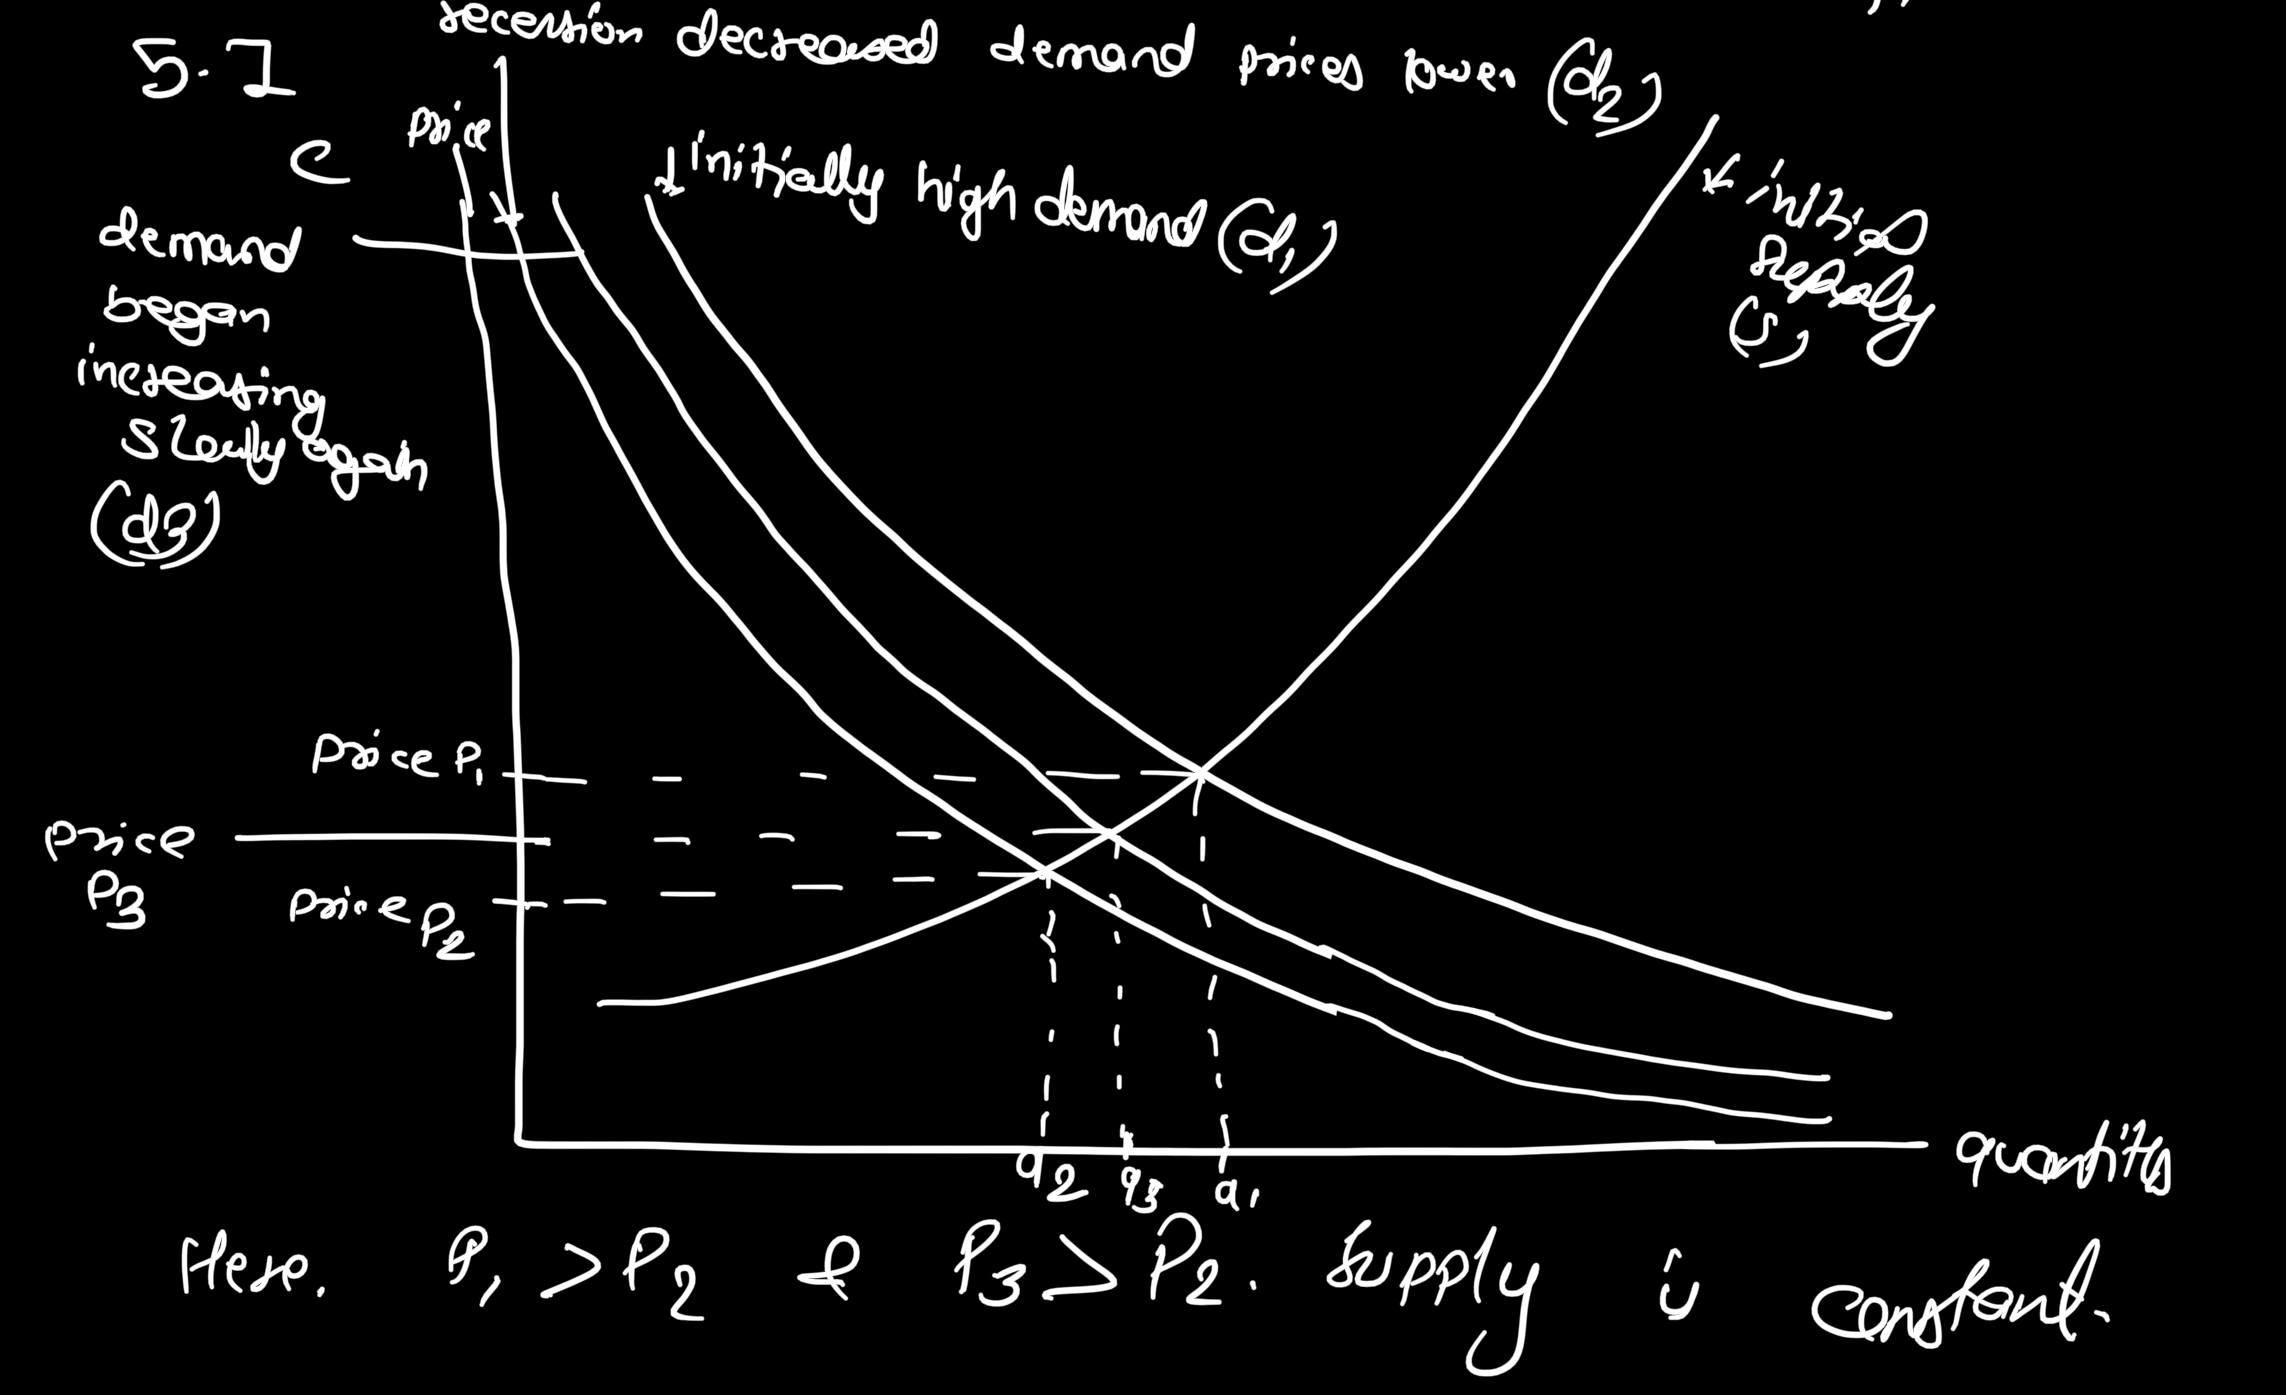 recession decreased demand prices lower (d2)
5.1
C
price
initially high demand (d1)
initial
supply
(s)
demand
began
increasing
slowly again
(d3)
price P1
price
P3
price P2
q2 q3 q1
quantity
Here, P1 > P2 & P3 > P2. Supply is constant.